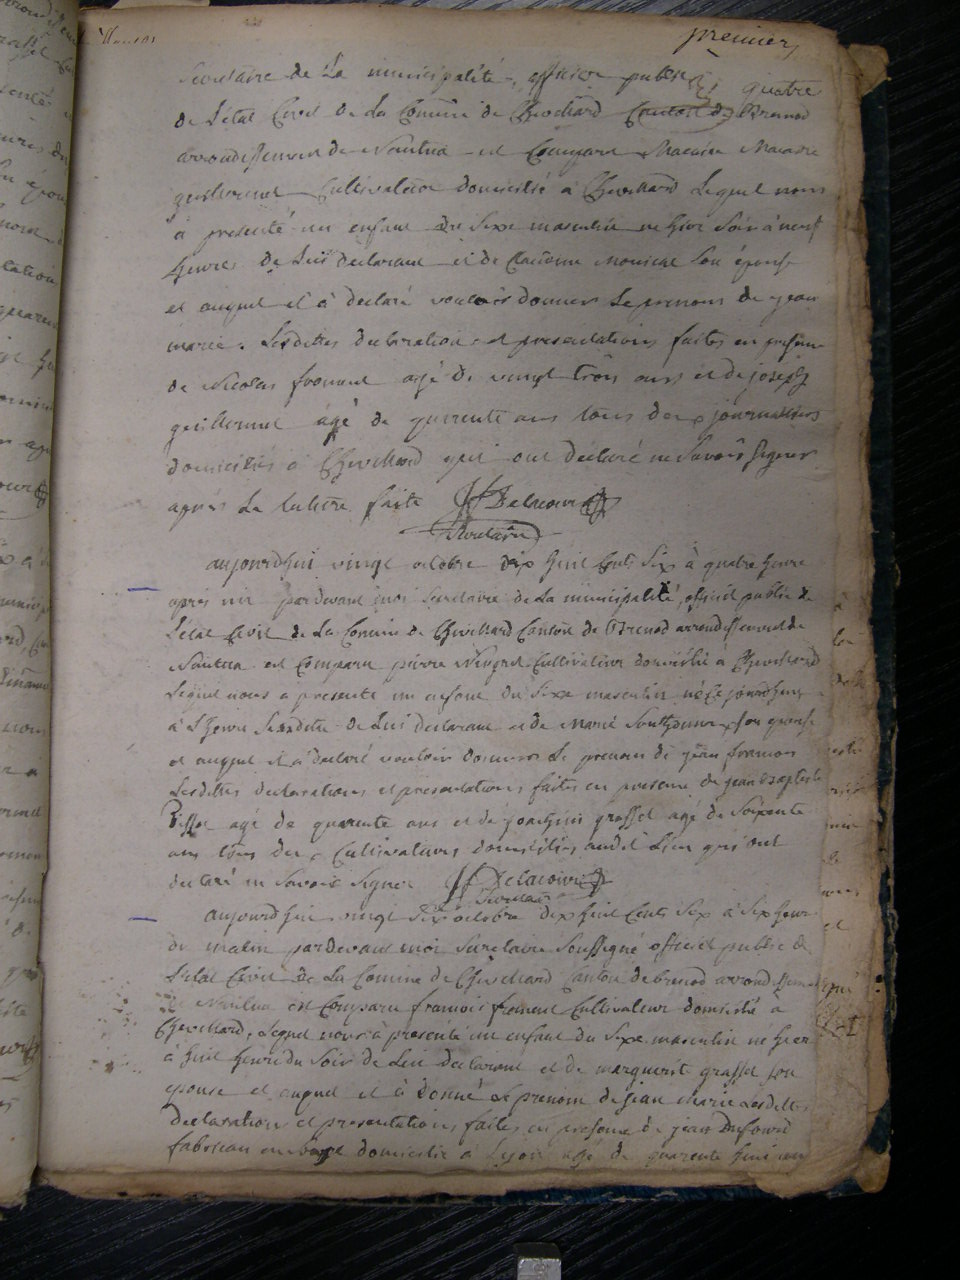 premier
quatre
Secretaire de La municipalité, officier public
de L'état Civil de La Comune de Chevillard Canton de Brenod
arrondissement de Nantua est Comparu
guillermet Cultivateur domicilié à Chevillard Lequel nous
à presenté un enfant du Sexe masculin né hier Soir à neuf
heures de Lui declarant et de Claudine son épouse
et auquel il à declaré vouloir donner Le prenom de jean
marie. Lesdittes declaration et presentations faites en presence
de Nicolas froment agé de vingt trois ans et de joseph
guillermet agé de quarente ans tous deux journaliers
domiciliés à Chevillard qui ont déclaré ne Savoir Signer
après La lecture faite Delacour
Secretaire
aujourdhui vingt octobre dix huit Cents Six à quatre heure
après mi pardevant moi Secretaire de La municipalité, officier public de
L'état Civil de La Comune de Chevillard Canton de Brenod arrondissement de
Nantua est Comparu pierre Cultivateur domicilié à Chevillard
Lequel nous a presenté un enfant du Sexe masculin né Ce jourdhuy
à L'heure Susditte de Lui declarant et de Marie son epouse
et auquel il à declaré vouloir donner Le prenom de jean francois
Lesdittes declarations et presentations faites en presence de jean Baptiste
agé de quarente ans et de joachim grassel agé de Soixente
ans tous deux Cultivateurs domiciliés audit Lieu qui ont
declaré ne Savoir Signer Delacour
Secretaire
aujourdhui vingt Six octobre dix huit Cents Six à Six heures
du matin pardevant moi Secretaire Soussigné officier public de
L'état Civil de La Comune de Chevillard Canton de brenod arrondissement
de Nantua est Comparu francois froment Cultivateur domicilié à
Chevillard, Lequel nous à presenté un enfant du Sexe masculin né hier
à huit heures du Soir de Lui declarant et de marguerite grassel son
epouse et auquel il à donné Le prenom de jean marie Lesdittes
declarations et presentations faites en presence de jean Dufour
domicilié à Lyon agé de quarente huit ans